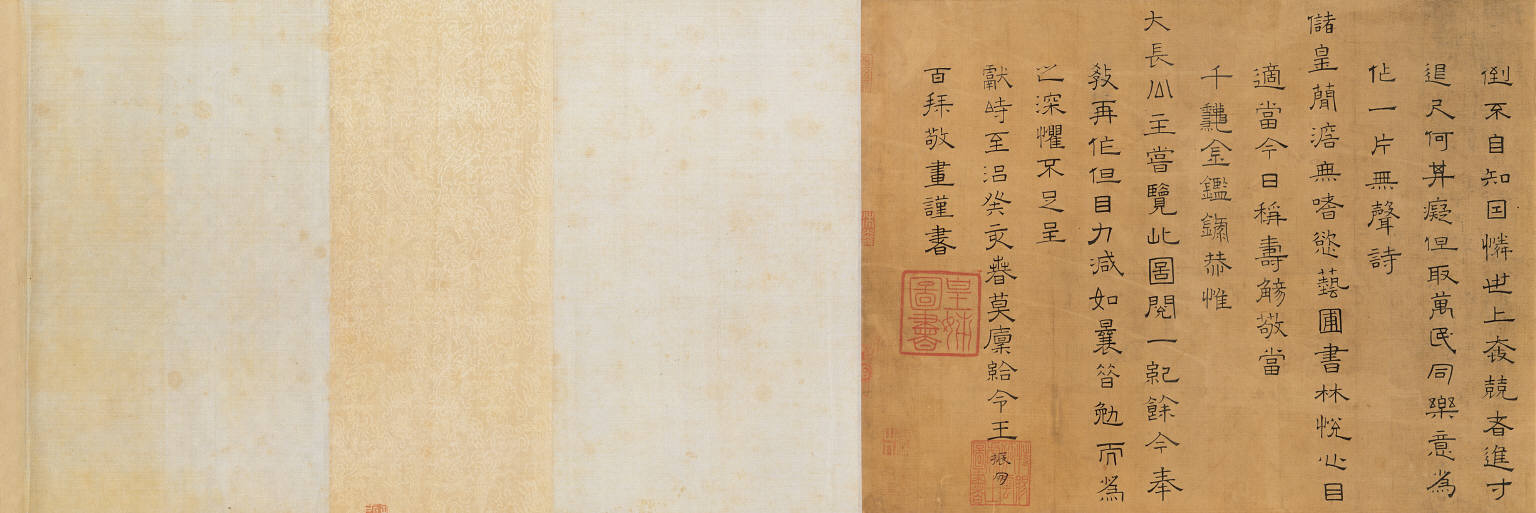 倒不自知因憐世上奔競者進寸
退尺何其癡但取萬民同樂意為
作一片無聲詩
儲皇簡澹無嗜慾藝圃書林悅心目
適當今日稱壽觴敬當
千龝金鑑錄恭惟
大長公主嘗覽此圖閱一紀餘今奉
教再作但目力減如曩昔勉而為
之深懼不足呈
獻時至治癸亥春莫廩給令王振朋
百拜敬畫謹書
皇姊圖書